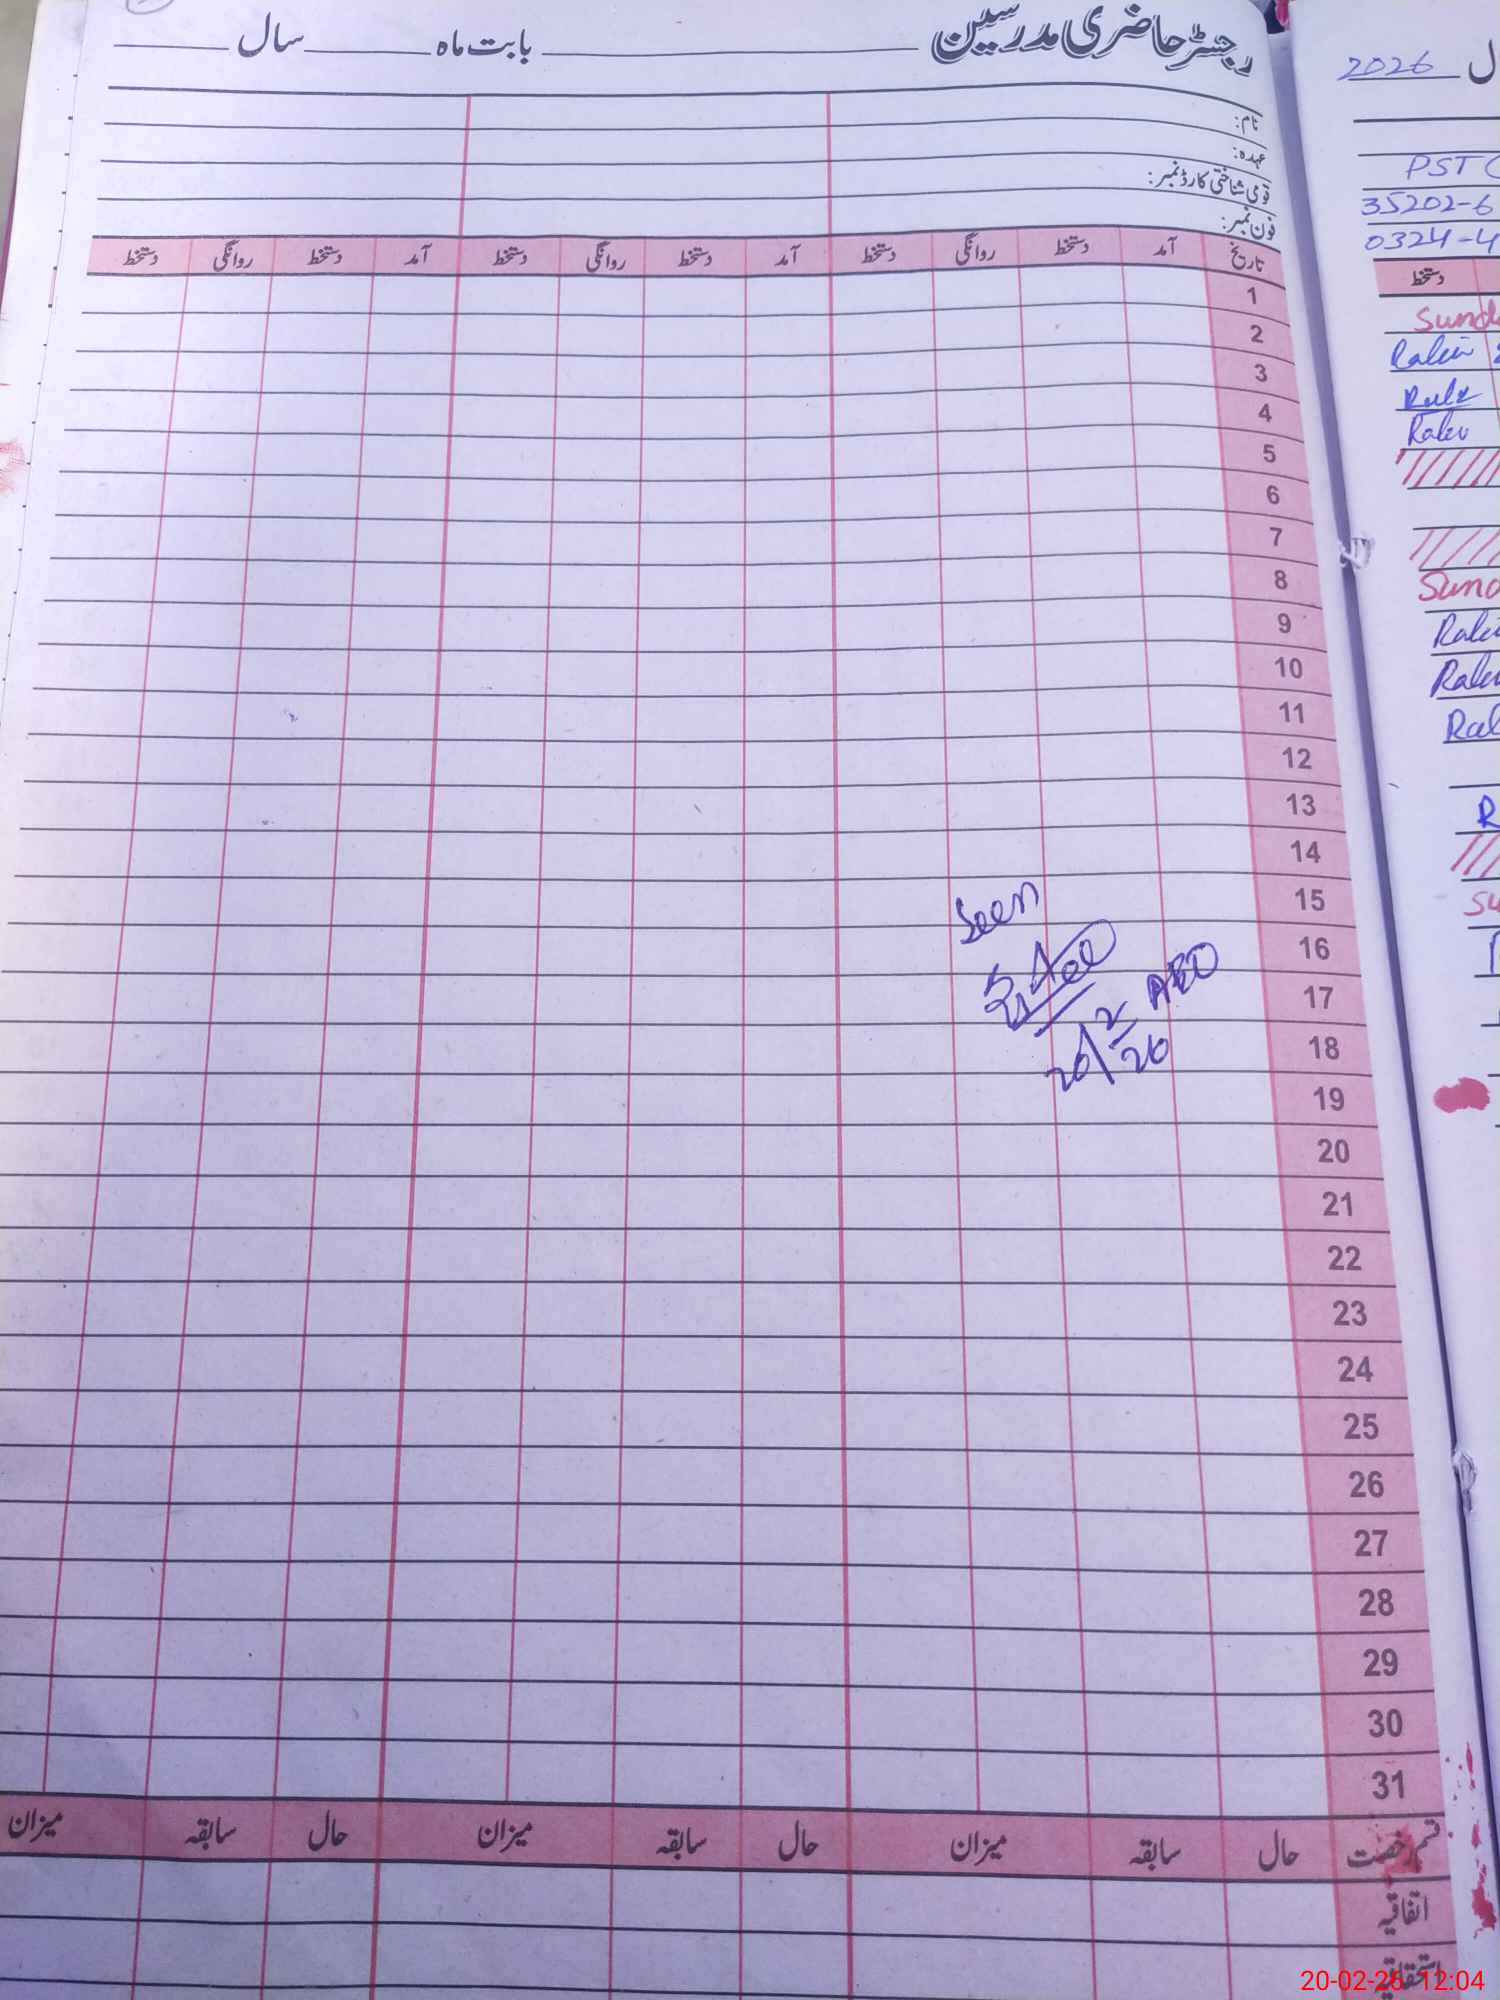 رجسٹر حاضری مدرسین ــــــ بابت ماہ ــــــ سال ــــــ
نام:
عہدہ:
قومی شناختی کارڈ نمبر:
فون نمبر:
تاریخ آمد دستخط روانگی دستخط آمد دستخط روانگی دستخط آمد دستخط روانگی دستخط
1
2
3
4
5
6
7
8
9
10
11
12
13
14
15
16
17
18
19
20
21
22
23
24
25
26
27
28
29
30
31
Seen
AEO
20/2/26
قسم رخصت حال سابقہ میزان حال سابقہ میزان حال سابقہ میزان
اتفاقیہ
استحقاقیہ
2026
PST
35202-6
0324-4
دستخط
20-02-26 12:04